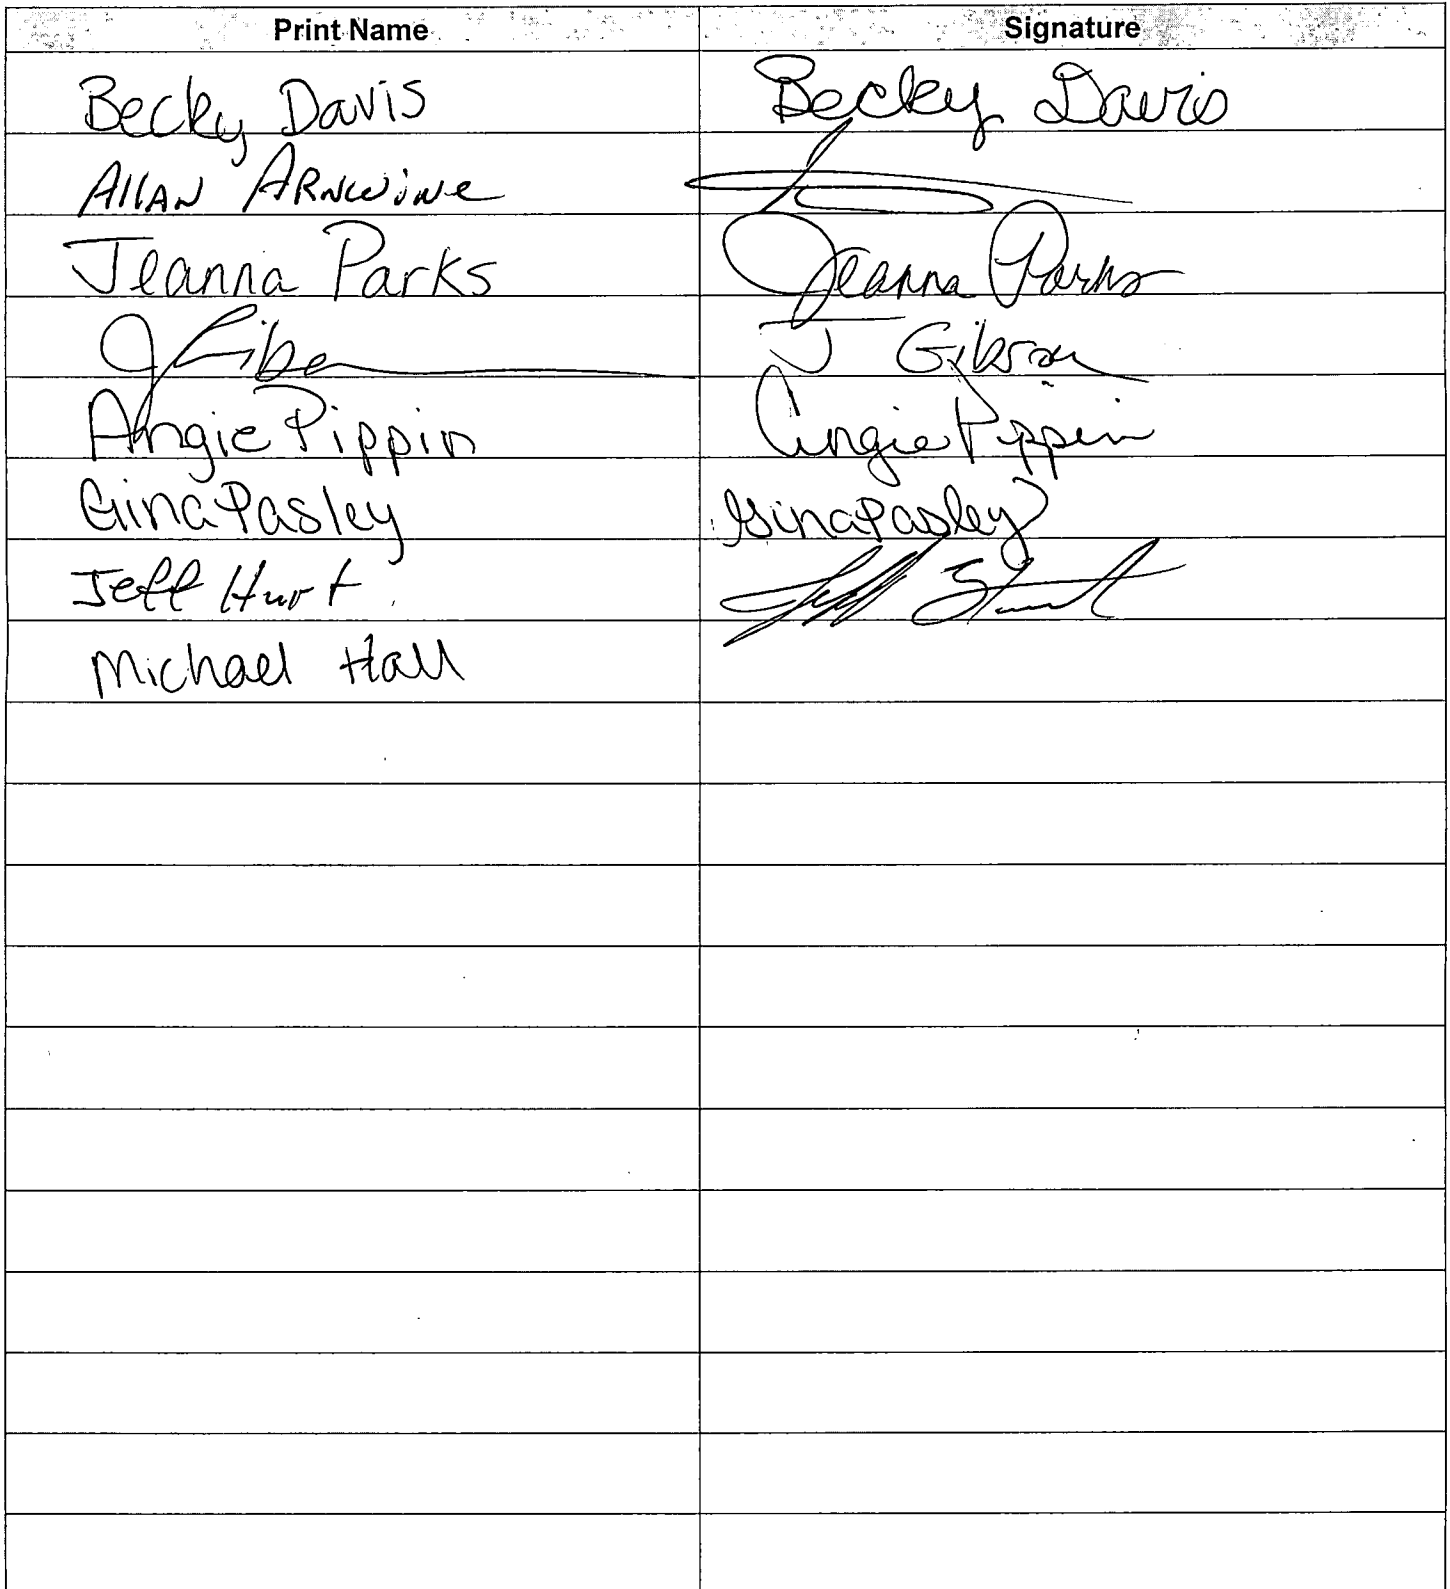 Print Name Signature
Becky Davis Becky Davis
Allan Arnwine
Jeanna Parks Jeanna Parks
J Gibson
Angie Pippin Angie Pippin
Gina Pasley Gina Pasley
Jeff Hurt Jeff Hurt
Michael Hall